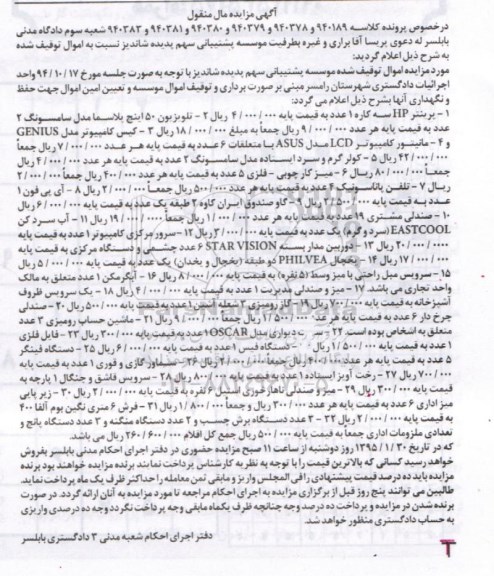 آگهی مزایده مال منقول
درخصوص پرونده کلاسه ۹۴۰۱۸۹ و ۹۴۰۳۷۸ و ۹۴۰۳۷۹ و ۹۴۰۳۸۰ و ۹۴۰۳۸۱ و ۹۴۰۳۸۲ شعبه سوم دادگاه مدنی
بابلسر له دعوی پریسا آقا براری و غیره بطرفیت موسسه پشتیبانی سهم پدیده شاندیز نسبت به اموال توقیف شده
به شرح ذیل اعلام گردید:
مورد مزایده اموال توقیف شده موسسه پشتیبانی سهم پدیده شاندیز با توجه به صورت جلسه مورخ ۹۴/۱۰/۱۷ واحد
اجرائیات دادگستری شهرستان رامسر مبنی بر صورت برداری و توقیف اموال موسسه و تعیین امین اموال جهت حفظ
و نگهداری آنها بشرح ذیل اعلام می گردد:
۱ - پرینتر HP سه کاره ۱ عدد به قیمت پایه ۴/۰۰۰/۰۰۰ ریال ۲ - تلویزیون ۵۰ اینچ پلاسما مدل سامسونگ ۲
عدد به قیمت پایه هر عدد ۹/۰۰۰/۰۰۰ ریال جمعاً به مبلغ ۱۸/۰۰۰/۰۰۰ ریال ۳ - کیس کامپیوتر مدل GENIUS
و ۴ - مانیتور کامپیوتر LCD مدل ASUS با متعلقات ۶ عدد به قیمت پایه هر عدد ۷/۰۰۰/۰۰۰ ریال جمعاً
۴۲/۰۰۰/۰۰۰ ریال ۵ - کولر گرم و سرد ایستاده مدل سامسونگ ۲ عدد به قیمت پایه هر عدد ۴/۰۰۰/۰۰۰ ریال
جمعاً ۸۰/۰۰۰/۰۰۰ ریال ۶ - میز گاز چوبی - فلزی ۵ عدد به قیمت پایه هر عدد ۴۰۰/۰۰۰ ریال جمعاً ۲/۰۰۰/۰۰۰
ریال ۷ - تلفن پاناسونیک ۴ عدد به قیمت پایه هر عدد ۵۰۰/۰۰۰ ریال جمعاً ۲/۰۰۰/۰۰۰ ریال ۸ - آی پی فون ۱
عدد به قیمت پایه ۲/۵۰۰/۰۰۰ ریال ۹ - گاو صندوق ایران کاوه ۲ طبقه یک عدد به قیمت پایه ۶/۰۰۰/۰۰۰ ریال
۱۰ - صندلی مشتری ۱۹ عدد به قیمت پایه هر عدد ۱/۰۰۰/۰۰۰ ریال جمعاً ۱۹/۰۰۰/۰۰۰ ریال ۱۱ - آب سرد کن
EASTCOOL (سرد و گرم) یک عدد به قیمت پایه ۳/۰۰۰/۰۰۰ ریال ۱۲ - سرور مرکزی کامپیوتر ۱ عدد به قیمت پایه
۲۰/۰۰۰/۰۰۰ ریال ۱۳ - دوربین مدار بسته STAR VISION ۶ عدد چشمی و دستگاه مرکزی به قیمت پایه
۱۷/۰۰۰/۰۰۰ ریال ۱۴ - یخچال PHILVEA دو طبقه (یخچال و یخدان) یک عدد به قیمت پایه ۵/۰۰۰/۰۰۰ ریال
۱۵ - سرویس مبل راحتی با میز وسط (۵ نفره) به قیمت پایه ۸/۰۰۰/۰۰۰ ریال ۱۶ - آبگرمکن ۱ عدد متعلق به مالک
واحد تجاری می باشد. ۱۷ - میز و صندلی مدیریت ۱ عدد به قیمت پایه ۴/۰۰۰/۰۰۰ ریال ۱۸ - یک سرویس ظروف
آشپزخانه به قیمت پایه ۷۰۰/۰۰۰ ریال ۱۹ - گاز رومیزی ۲ شعله آتیس ۱ عدد به قیمت پایه ۵۰۰/۰۰۰ ریال ۲۰ - صندلی
چرخ دار ۶ عدد به قیمت پایه هر عدد ۱/۵۰۰/۰۰۰ ریال جمعاً ۹/۰۰۰/۰۰۰ ریال ۲۱ - ماشین حساب رومیزی ۳ عدد
متعلق به اشخاص بوده است. ۲۲ - دیواری مدل OSCAR ۱ عدد به قیمت پایه ۳۰۰/۰۰۰ ریال ۲۳ - فایل فلزی
۱ عدد به قیمت پایه ۱/۵۰۰/۰۰۰ ریال - دستگاه فیس ۱ عدد به قیمت پایه ۶/۰۰۰/۰۰۰ ریال ۲۵ - دستگاه فینگر
۵ عدد به قیمت پایه هر عدد ۴۰۰/۰۰۰ ریال جمعاً ۲/۰۰۰/۰۰۰ ریال ۲۶ - سماور گازی و قوری ۱ عدد به قیمت پایه
۷۰۰/۰۰۰ ریال ۲۷ - رخت آویز ایستاده ۱ عدد به قیمت پایه ۸۰۰/۰۰۰ ریال ۲۸ - سرویس قاشق و چنگال ۱ پارچه به
قیمت پایه ۳۰۰/۰۰۰ ریال ۲۹ - میز و صندلی ناهار خوری استیل ۶ نفره به قیمت پایه ۲/۰۰۰/۰۰۰ ریال ۳۰ - زیر پایی
میز اداری ۶ عدد به قیمت پایه هر عدد ۳۰۰/۰۰۰ ریال و جمعاً ۱/۸۰۰/۰۰۰ ریال ۳۱ - فرش ۶ متری نگین بوم آلفا ۴۰۰
به قیمت پایه ۲/۰۰۰/۰۰۰ ریال ۳۲ - ۳ عدد دستگاه برش چسب و ۲ عدد دستگاه منگنه و ۳ عدد دستگاه پانچ و
تعدادی ملزومات اداری جمعاً به قیمت پایه ۵۰۰/۰۰۰ ریال جمع کل اقلام ۲۶۰/۶۰۰/۰۰۰ ریال می باشد.
که در تاریخ ۱۳۹۵/۱/۳۰ روز دوشنبه از ساعت ۱۱ صبح مزایده حضوری در دفتر اجرای احکام مدنی بابلسر بفروش
خواهد رسید کسانی که بالاترین قیمت را با توجه به نظریه کارشناس پرداخت نمایند برنده مزایده خواهند بود برنده
مزایده باید ده درصد قیمت پیشنهادی را فی المجلس واریز و مابقی ثمن معامله را حداکثر ظرف یک ماه پرداخت نماید.
طالبین می توانند پنج روز قبل از برگزاری مزایده به اجرای احکام مراجعه تا مورد مزایده به آنان ارائه گردد. در صورت
برنده شدن در مزایده و پرداخت ده درصد وجه چنانچه ظرف یکماه مابقی وجه پرداخت نگردد وجه ده درصدی واریزی
به حساب دادگستری منظور خواهد شد.
دفتر اجرای احکام شعبه مدنی ۳ دادگستری بابلسر